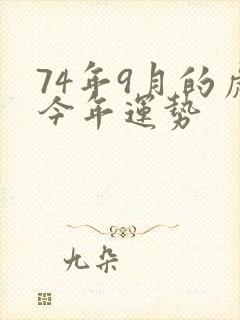 74年9月的虎
今年運势
九朵